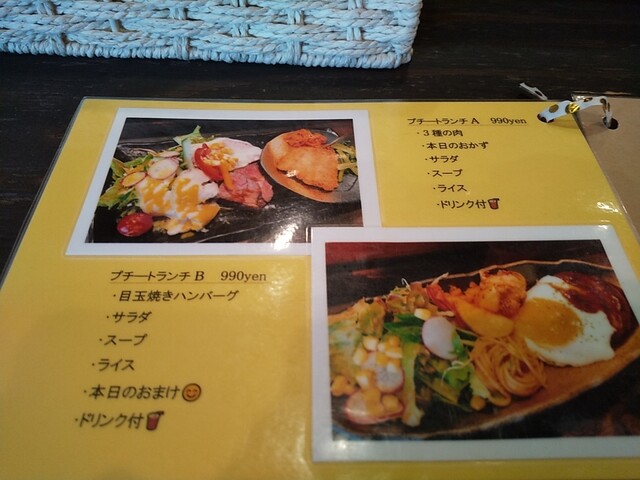 プチートランチ A 990yen
・3種の肉
・本日のおかず
・サラダ
・スープ
・ライス
・ドリンク付
プチートランチ B 990yen
・目玉焼きハンバーグ
・サラダ
・スープ
・ライス
・本日のおまけ😊
・ドリンク付